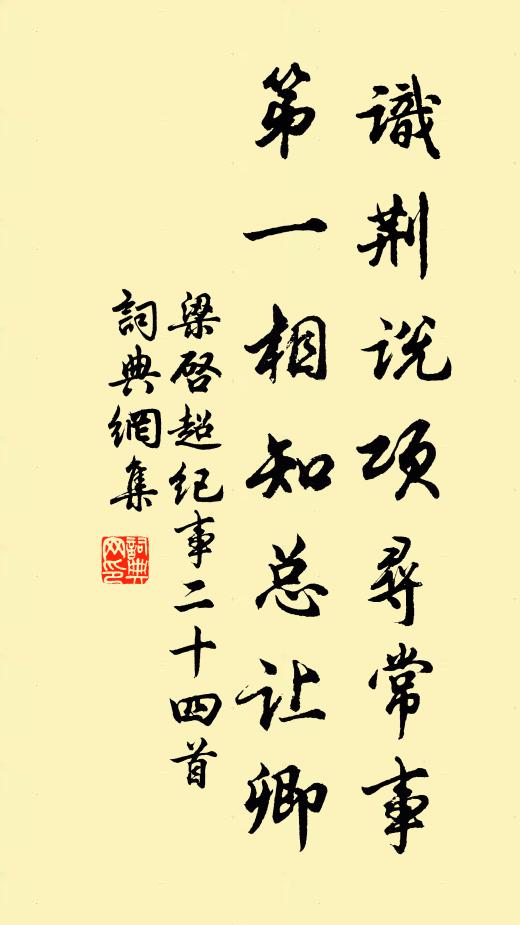 識荆说项尋常事
第一相知总让卿
梁啓超纪事二十四首
詞典網集
詞典
网印